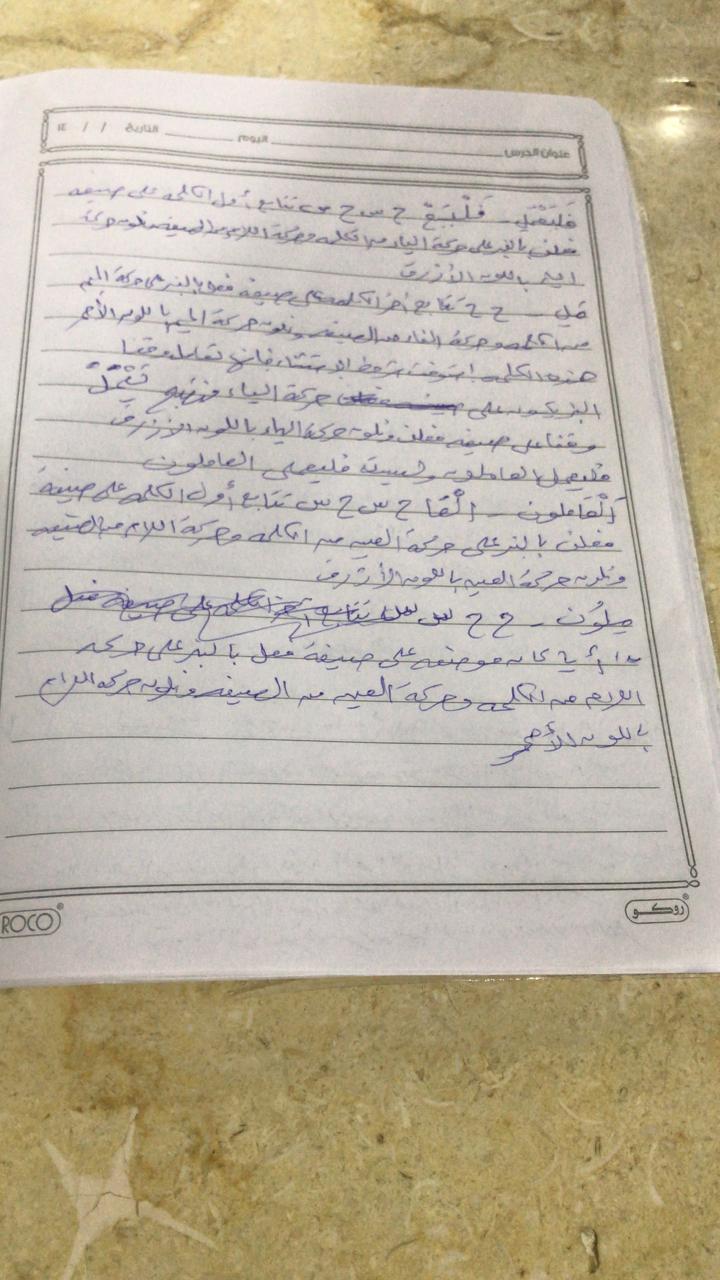 عنوان الدرس اليوم التاريخ / / ١٤
فَلْيَعْمَلِ - فَلْيَعْ ح س ح س تتابع أول الكلمة على صيغة
فعلن بالنبر على حركة الياء من الكلمة وحركة اللام من الصيغة ونلون حركة
الياء باللون الأزرق
مَلِ - ح ح تتابع آخر الكلمة على صيغة فعل بالنبر على حركة الميم
من الكلمة وحركة الفاء من الصيغة ونلون حركة الميم باللون الأحمر
هذه الكلمة استوفت شرط الاستثناء فإنها تعامل وقفا
النبر يكون على حركة الياء
وقفا على صيغة فعلن ونلون حركة الياء باللون الأزرق
فليعمل العاملون وليست فليعملي العاملون
اَلْعَامِلون - اَلْعَا ح س ح س تتابع أول الكلمة على صيغة
فعلن بالنبر على حركة العين من الكلمة وحركة اللام من الصيغة
ونلون حركة العين باللون الأزرق
مِلُون - ح ح س
على صيغة فعل بالنبر على حركة
اللام من الكلمة وحركة العين من الصيغة ونلون حركة اللام
باللون الأحمر
ROCO روكو